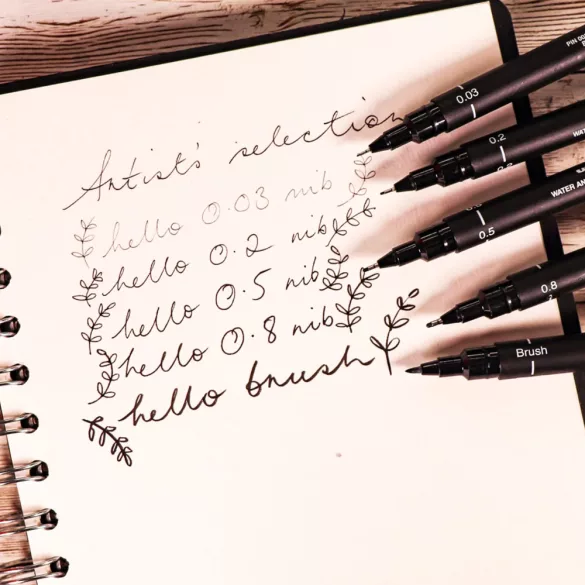 Artist's selection
hello 0.03 nib
hello 0.2 nib
hello 0.5 nib
hello 0.8 nib
hello brush
0.03
PIN
0.2
WATER AN
0.5
0.8
Brush